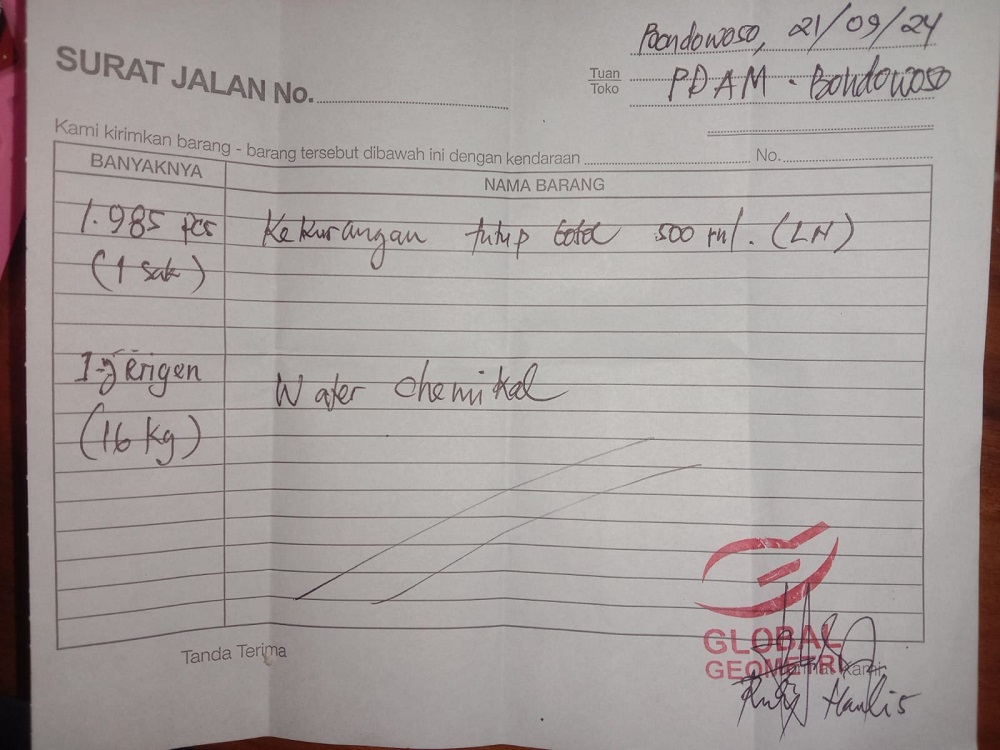 Bondowoso, 21/09/24
SURAT JALAN No.
Tuan
Toko
PDAM - Bondowoso
Kami kirimkan barang - barang tersebut dibawah ini dengan kendaraan No.
BANYAKNYA NAMA BARANG
1.985 pcs Kekurangan tutup botol 500 ml. (LN)
(1 sak)
1 jerigen Water chemikal
(16 kg)
GLOBAL
GEOMETRI
Tanda Terima
Kami